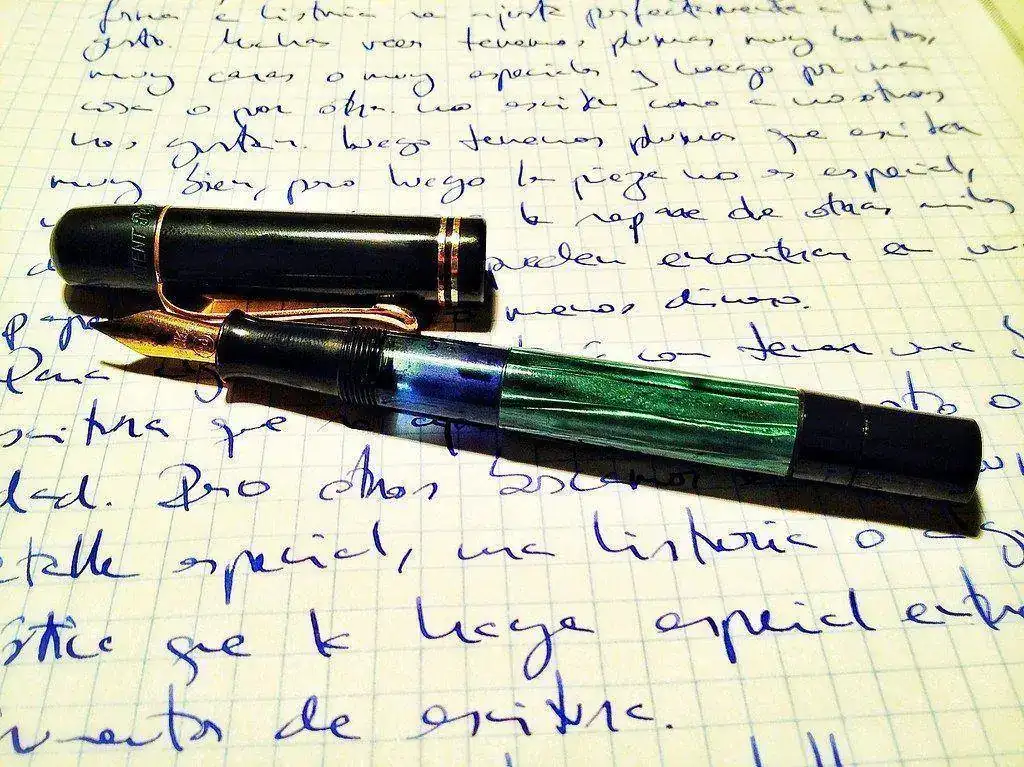 historia se ajusta perfectamente a tu
gusto. Muchas veces tenemos plumas muy bonitas,
muy caras o muy especiales y luego por una
cosa o por otra no escriben como a nosotros
nos gustan. Luego tenemos plumas que escriben
muy bien, pero luego la pieza no es especial,
de otras miles
pueden encontrar en un
menos dinero.
Para con tener una
escritura que
dad. Pero otros buscamos
especial, una historia o
que la haga especial entre
de escritura.
PATENT